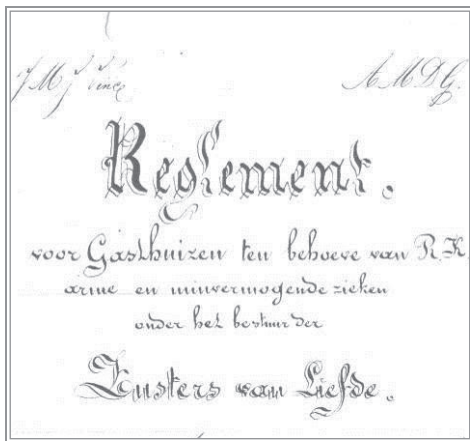 J M J Vinc A M D G.
Reglement.
voor Gasthuizen ten behoeve van R.K
arme en minvermogende zieken
onder het bestuur der
Zusters van Liefde.